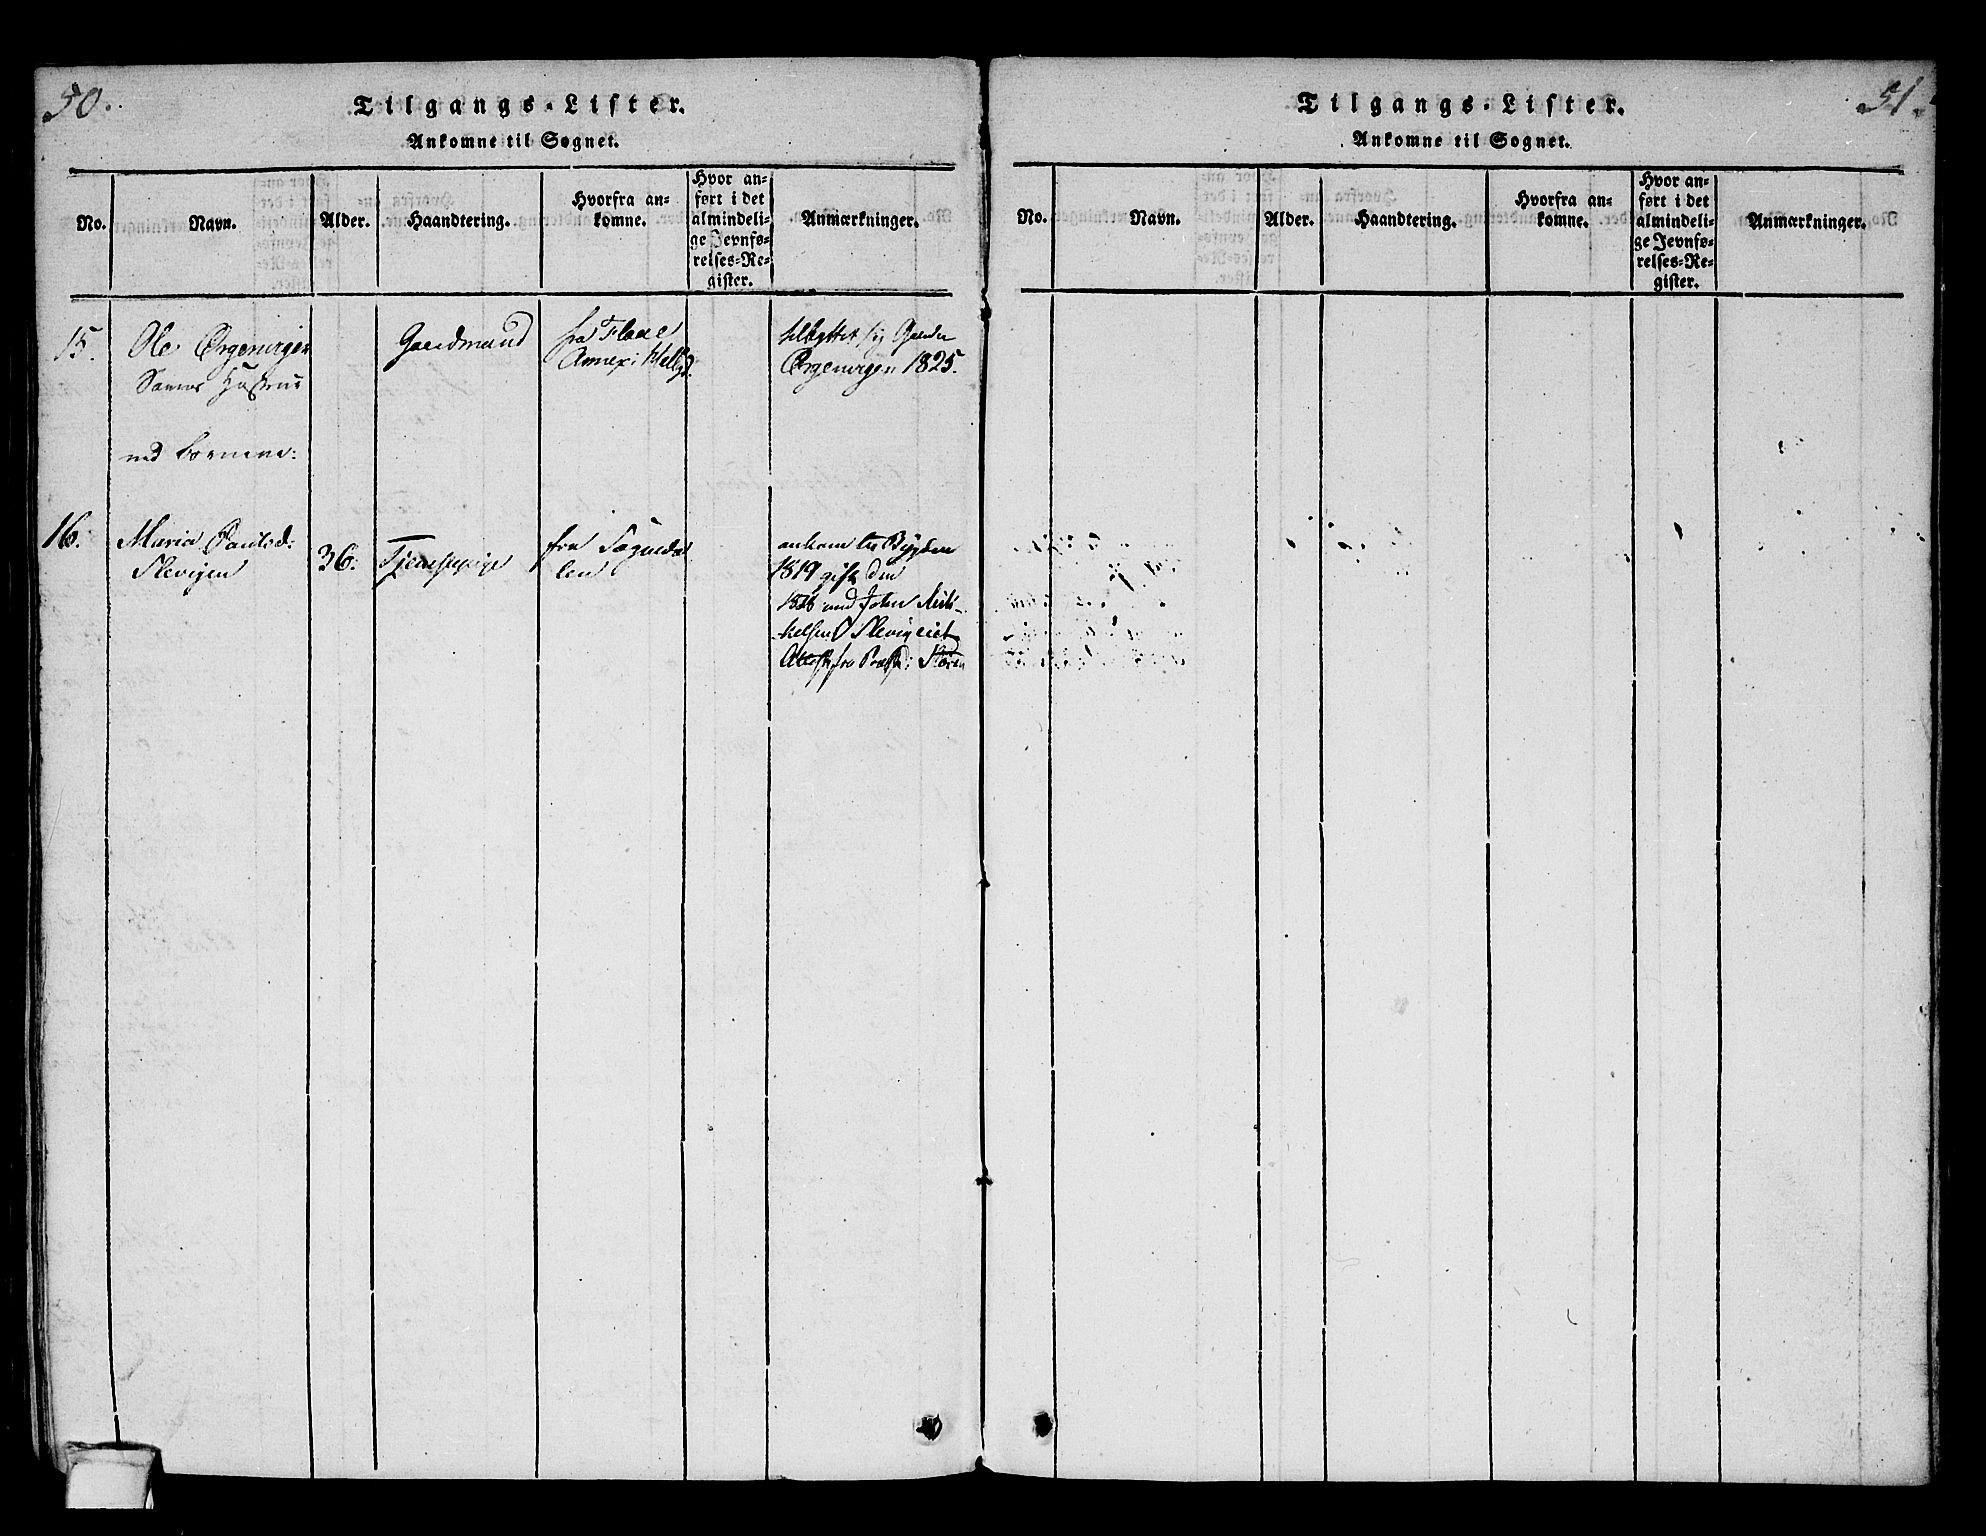 50.
Tilgangs-Lister.
Ankomne til Sognet.
No.
Navn.
Alder.
Haandtering.
Hvorfra an-
komne.
Hvor an-
ført i det
almindeli-
ge Jevnfø-
relses-Re-
gister.
Anmærkninger.
15.
Ole
Sammes Hustrue
med Børnene:
Gaardmand
fra Flaae
Annex i
tilbyttet sig Gaarden
1825.
16.
Maria Paulsd:
Slevigen
36.
Tjenestepige
fra Sognedal
len
ankom til Bygden
1819 gift den
1828 med John Mik-
kelsen Slevigeiet
Attest fra Præsten i Støren
51.
Tilgangs-Lister.
Ankomne til Sognet.
No.
Navn.
Alder.
Haandtering.
Hvorfra an-
komne.
Hvor an-
ført i det
almindeli-
ge Jevnfø-
relses-Re-
gister.
Anmærkninger.